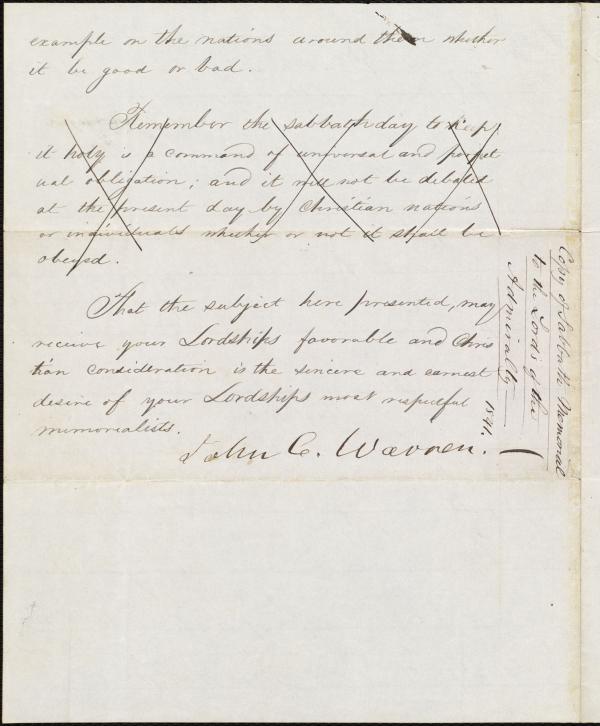 example on the nations around them whether
it be good or bad.
Remember the sabbath day to keep
it holy is a command of universal and perpet
ual obligation; and it will not be debated
at the present day by Christian nations
or individuals whether or not it shall be
obeyed.
That the subject here presented, may
receive your Lordships favorable and Chris
tian consideration is the sincere and earnest
desire of your Lordships most respectful
memorialists.
John C. Warren.
Copy of Sabbath Memorial
to the Lords of the
Admiralty
1841.